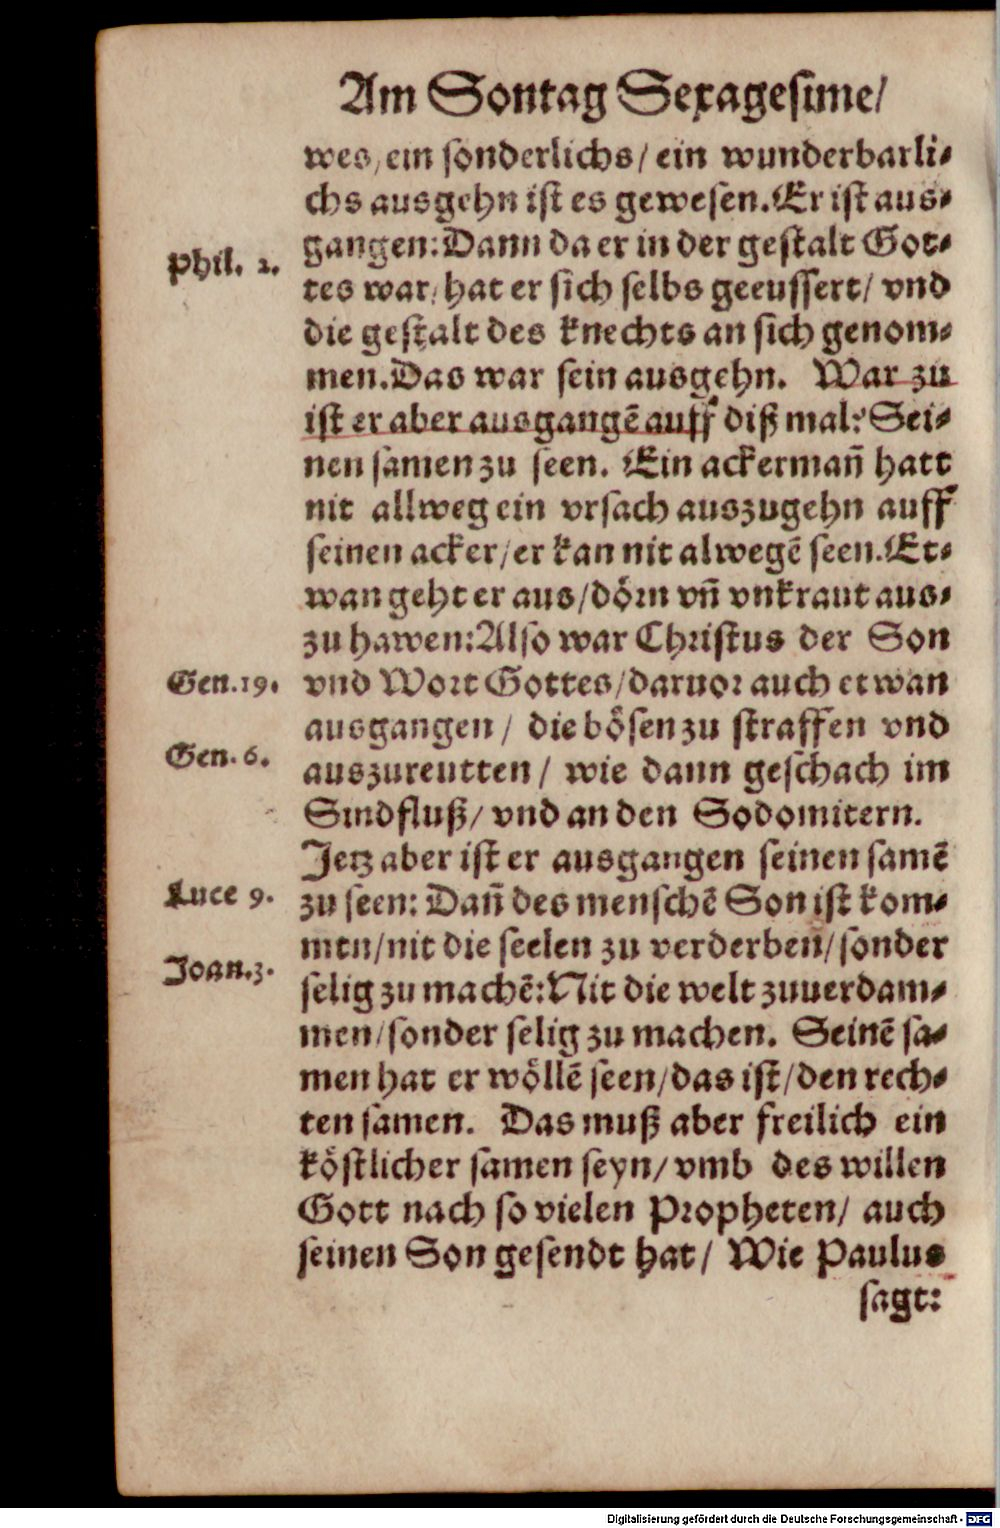 Am Sontag Sexagesime/
wes/ein sonderlichs/ein wunderbarli-
chs ausgehn ist es gewesen.Er ist aus-
gangen:Dann da er in der gestalt Got-
Phil. 2.
tes war/hat er sich selbs geeussert/ vnd
die gestalt des knechts an sich genom-
men.Das war sein ausgehn. War zu
ist er aber ausgangē auff diß mal? Sei-
nen samen zu seen. Ein ackermañ hatt
nit allweg ein vrsach auszugehn auff
seinen acker/er kan nit alwegē seen.Et-
wan geht er aus/dörn vñ vnkraut aus-
zu hawen:Also war Christus der Son
Gen.19.
vnd Wort Gottes/daruor auch etwan
ausgangen/ die bösen zu straffen vnd
Gen. 6.
auszureutten/ wie dann geschach im
Sindfluß/ vnd an den Sodomitern.
Jetz aber ist er ausgangen seinen samē
Luce 9.
zu seen: Dañ des menschē Son ist kom-
men/nit die seelen zu verderben/sonder
Joan.3.
selig zu machē:Nit die welt zuuerdam-
men/sonder selig zu machen. Seinē sa-
men hat er wöllē seen/das ist/den rech-
ten samen. Das muß aber freilich ein
köstlicher samen seyn/ vmb des willen
Gott nach so vielen Propheten/ auch
seinen Son gesendt hat/ Wie Paulus
sagt:
Digitalisierung gefördert durch die Deutsche Forschungsgemeinschaft - DFG